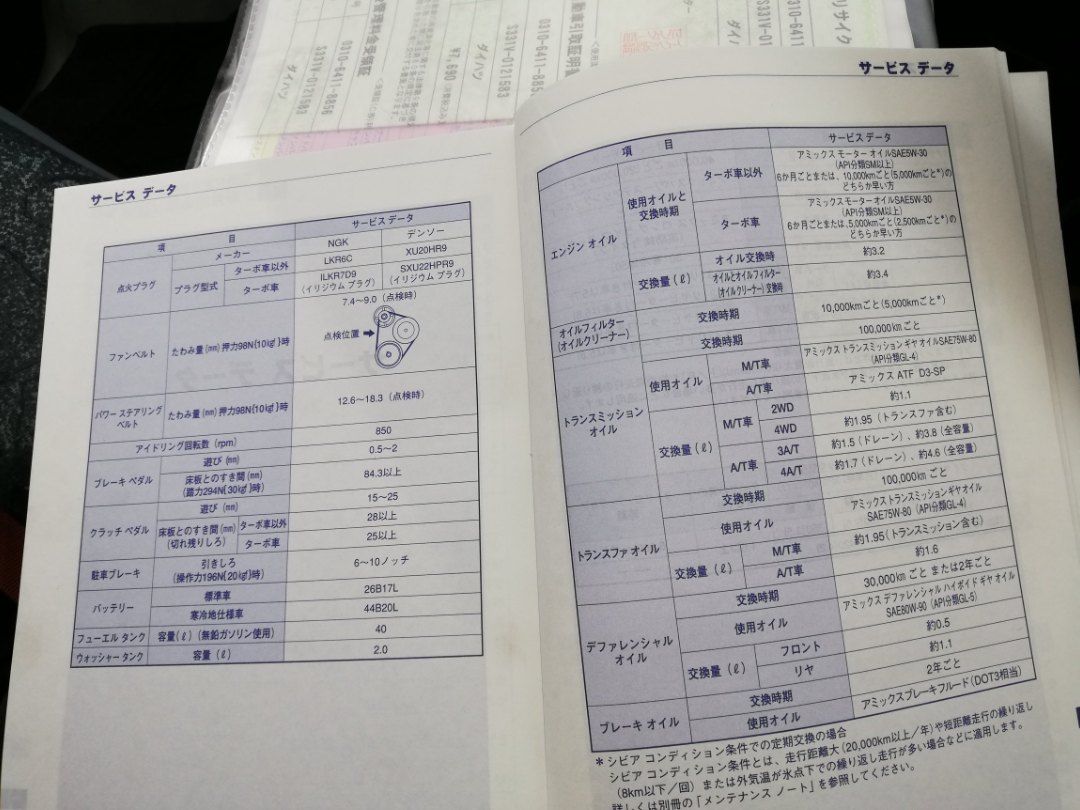 リサイク
0310-6411-8
S331V-01
ダイハ
自動車引取証明書
0310-6411-885
S331V-0121583
ダイハツ
¥7,690
管理料金受領証
0310-6411-8856
S331V-0121583
ダイハツ
サービス データ
項 目
サービス データ
メーカー
NGK
デンソー
点火プラグ
プラグ型式
ターボ車以外
LKR6C
XU20HR9
ターボ車
ILKR7D9
(イリジウム プラグ)
SXU22HPR9
(イリジウム プラグ)
ファンベルト
たわみ量(mm)押力98N{10kgf}時
7.4〜9.0(点検時)
点検位置
パワー ステアリング
ベルト
たわみ量(mm)押力98N{10kgf}時
12.6〜18.3(点検時)
アイドリング回転数(rpm)
850
ブレーキ ペダル
遊び(mm)
0.5〜2
床板とのすき間(mm)
(踏力294N{30kgf}時)
84.3以上
クラッチ ペダル
遊び(mm)
15〜25
床板とのすき間(mm)
(切れ残りしろ)
ターボ車以外
28以上
ターボ車
25以上
駐車ブレーキ
引きしろ
(操作力196N{20kgf}時)
6〜10ノッチ
バッテリー
標準車
26B17L
寒冷地仕様車
44B20L
フューエル タンク
容量(ℓ)(無鉛ガソリン使用)
40
ウォッシャー タンク
容量(ℓ)
2.0
サービス データ
項 目
サービス データ
エンジン オイル
使用オイルと
交換時期
ターボ車以外
アミックス モーター オイルSAE5W-30
(API分類SM以上)
6か月ごとまたは、10,000kmごと(5,000kmごと*)の
どちらか早い方
ターボ車
アミックス モーター オイルSAE5W-30
(API分類SM以上)
6か月ごとまたは、5,000kmごと(2,500kmごと*)の
どちらか早い方
交換量(ℓ)
オイル交換時
約3.2
オイルとオイルフィルター
(オイルクリーナー)交換時
約3.4
オイルフィルター
(オイルクリーナー)
交換時期
10,000kmごと(5,000kmごと*)
トランスミッション
オイル
交換時期
100,000kmごと
使用オイル
M/T車
アミックス トランスミッション ギヤ オイルSAE75W-80
(API分類GL-4)
A/T車
アミックス ATF D3-SP
交換量(ℓ)
M/T車
2WD
約1.1
4WD
約1.95(トランスファ含む)
A/T車
3A/T
約1.5(ドレーン)、約3.8(全容量)
4A/T
約1.7(ドレーン)、約4.6(全容量)
トランスファ オイル
交換時期
100,000kmごと
使用オイル
アミックス トランスミッション ギヤ オイル
SAE75W-80(API分類GL-4)
交換量(ℓ)
M/T車
約1.95(トランスミッション含む)
A/T車
約1.6
デファレンシャル
オイル
交換時期
30,000kmごと または2年ごと
使用オイル
アミックス デファレンシャル ハイポイド ギヤ オイル
SAE80W-90(API分類GL-5)
交換量(ℓ)
フロント
約0.5
リヤ
約1.1
ブレーキ オイル
交換時期
2年ごと
使用オイル
アミックスブレーキフルード(DOT3相当)
*シビア コンディション条件での定期交換の場合
シビア コンディション条件とは、走行距離大(20,000km以上/年)や短距離走行の繰り返し
(8km以下/回)または外気温が氷点下での繰り返し走行が多い場合などに適用します。
詳しくは別冊の「メンテナンス ノート」を参照してください。